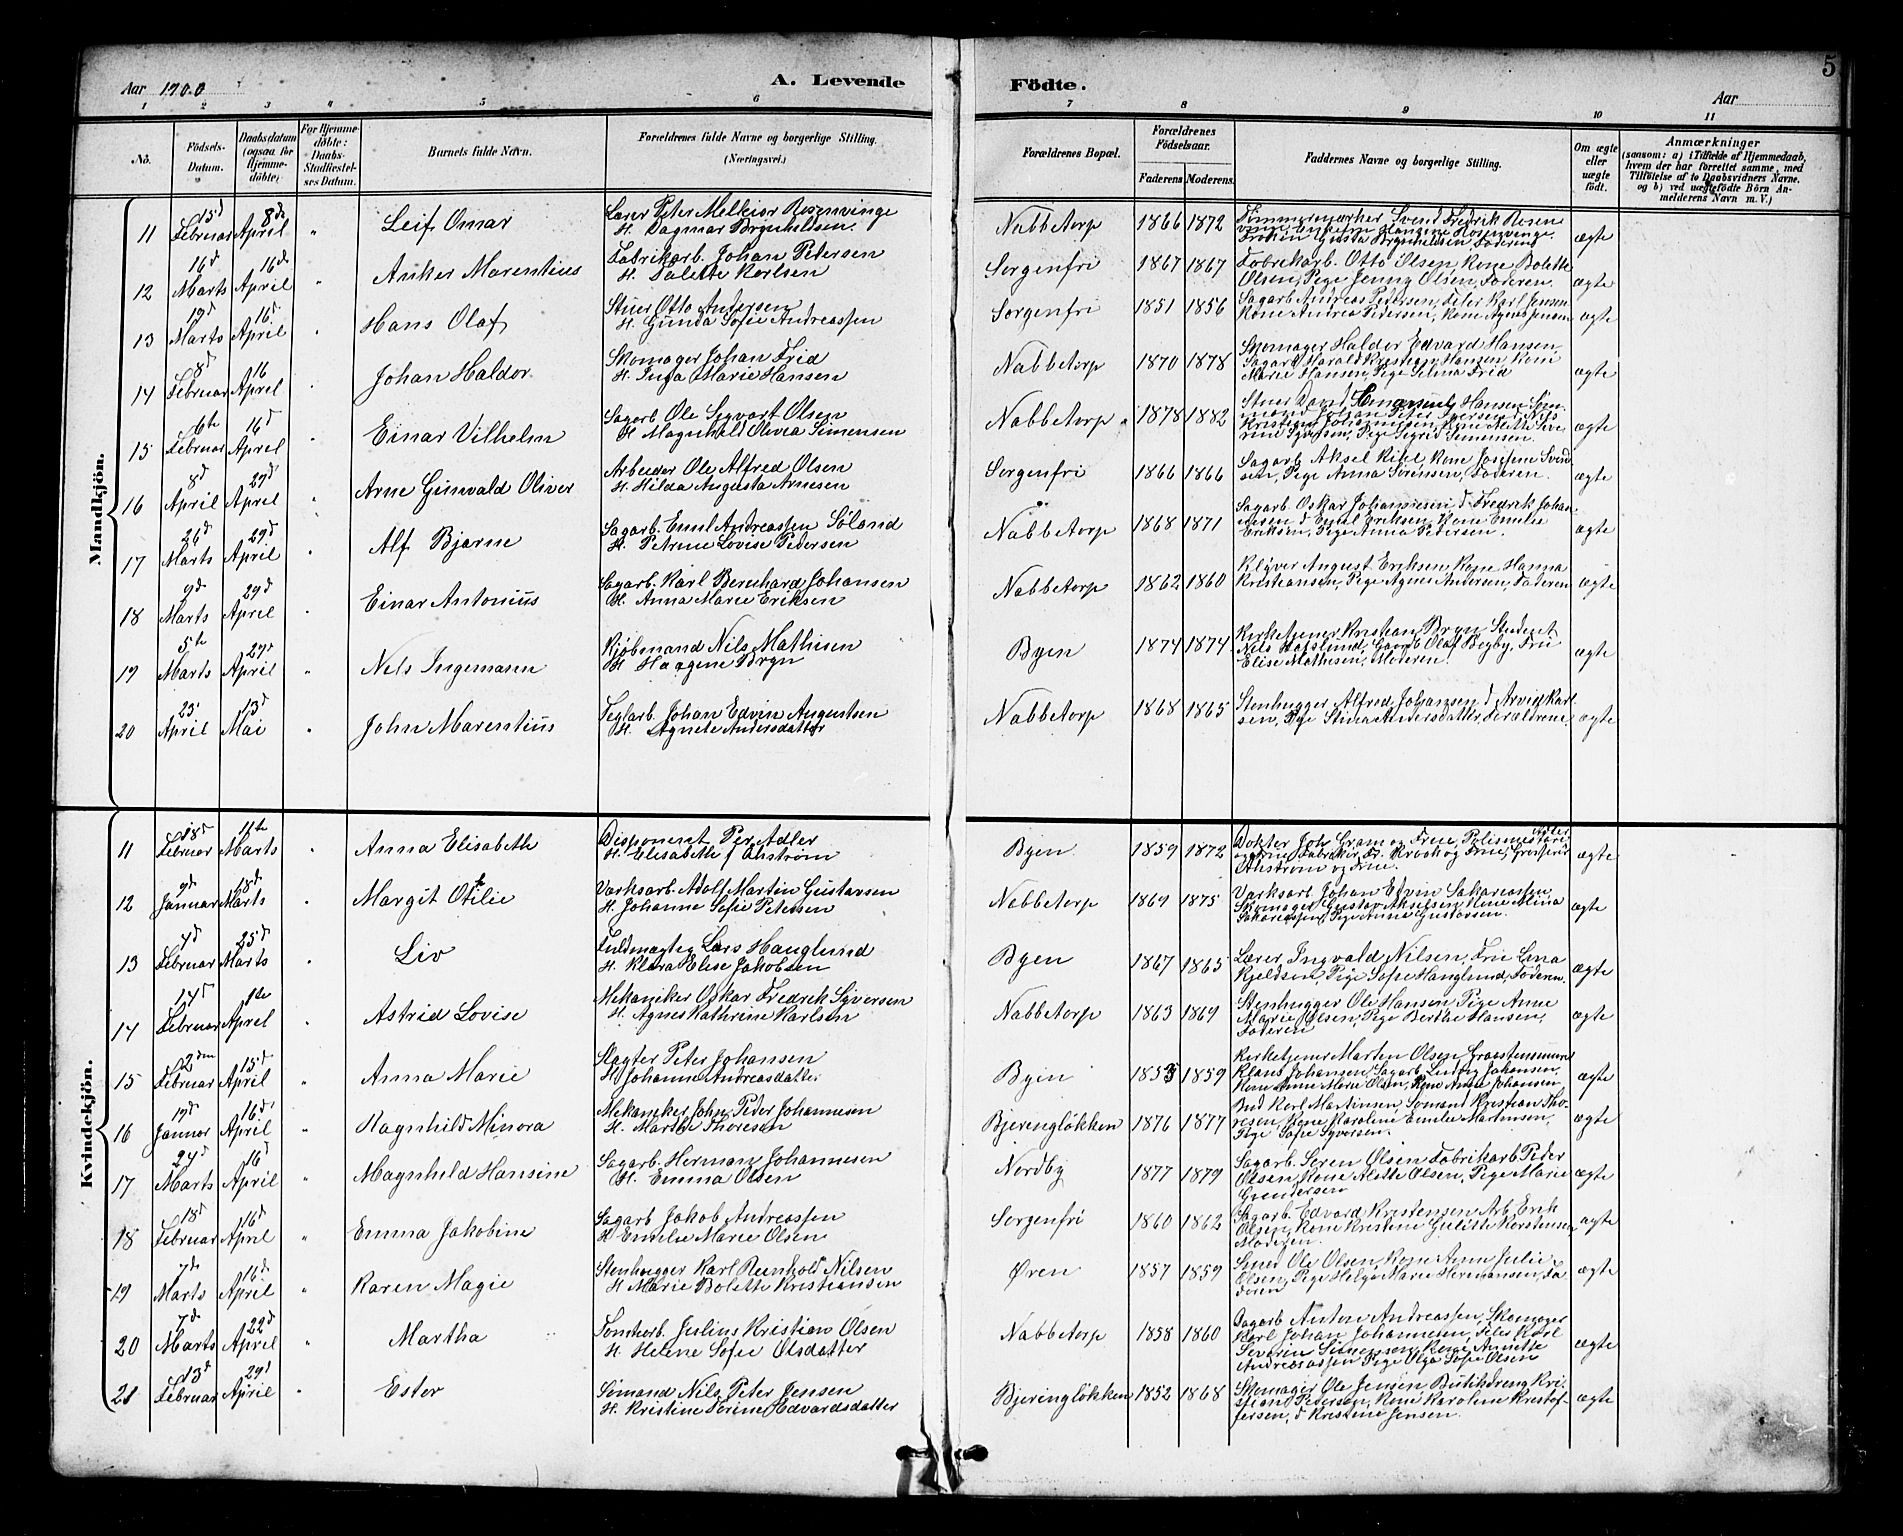 Aar 1900
A. Levende Födte.
Aar
5
1 2 3 4 5 6 7 8 9 10 11
No.
Födsels-Datum.
Daabsdatum (ogsaa for Hjemmedøbte).
For Hjemmedøbte: Daabs-Stadfæstelses Datum.
Barnets fulde Navn.
Forældrenes fulde Navne og borgerlige Stilling. (Næringsvei.)
Forældrenes Bopæl.
Forældrenes Födselsaar. Faderens Moderens
Faddernes Navne og borgerlige Stilling.
Om ægte eller uægte födt.
Anmærkninger
(saasom: a) i Tilfælde af Hjemmedaab, hvem der har forrettet samme, med Tilföielse af to Daabsvidners Navne. og b) ved uægtefödte Börn Anmelderens Navn m. V.)
Mandkjön.
11 15d Februar 8de April " Leif Omar Lærer Peter Melkior Rosenvinge H. Dagmar Brynhildsen. Nabbetorp 1866 1872 Svend Fredrik Rosen Rosenvinge Gusta Brynhildsen Faderen ægte
12 16d Marts 16de April " Anker Marentius Fabrikarb. Johan Petersen H. Dalette Karlsen Sorgenfri 1867 1867 Fabrikarb. Otto Olsen, Kone Bolette Olsen, Pige Jenny Olsen, Faderen. ægte
13 19d Marts 16d April " Hans Olaf Stuer Otto Andersen H. Gunda Sofie Andreassen Sorgenfri 1851 1856 Sagarb Andreas Pedersen, Karl Jensen Kone Andrea Pedersen, Kone Agnes Jensen ægte
14 8d Februar 16 April " Johan Haldor Skomager Johan Frid H. Inga Marie Hansen Nabbetorp 1870 1878 Skomager Haldor Edvard Hansen, Sagarb. Harald Kristian Hansen, Kone Marie Hansen, Pige Selma Frid ægte
15 6te Februar 16d April " Einar Vilhelm Sagarb. Ole Sigvart Olsen H. Magnhild Olivia Simensen Nabbetorp 1878 1882 Stuer Hansen Johan Peter Nils Kristian Johannessen, Kone Mette Pige Sigrid Simensen. ægte
16 8d April 29d April " Arne Gunvald Oliver Arbeider Ole Alfred Olsen H. Hilda Augusta Arnesen Sorgenfri 1866 1866 Sagarb. Aksel Kihl, Kone Josefine Svendsen, Pige Anna Sörensen, Faderen. ægte
17 26d Marts 29d April " Alf Bjarne Sagarb. Emil Andreassen Söland H. Petrine Lovise Pedersen Nabbetorp 1868 1871 Sagarb. Oskar Johannesen, d. Fredrik Johannesen, d. Emil Eriksen, Kone Emilie Eriksen, Pige Anna Pedersen. ægte
18 9d Marts 29d April " Einar Antonius Sagarb. Karl Bernhard Johansen H. Anna Marie Eriksen Nabbetorp 1862 1860 Klöver August Eriksen, Kone Hanna Kristiansen, Pige Agnes Andersen, Faderen ægte
19 5te Marts 29d April " Nils Ingemann Kjöbmand Nils Mathisen H. Haagine Bryn Byen 1874 1874 Kirketjener Kristian Bryn, Student Nils Hafslund, Gaardb. Olaf Begby, Frü Elise Mathisen, Moderen. ægte
20 23. April 13d Mai " John Marentius Teglarb. Johan Edvin Augustsen H. Agnete Andersdatter Nabbetorp 1868 1865 Stenhugger Alfred Johansen, d. Arvid Karlsen, Pige Stina Andersdatter, Forældrene. ægte
Kvindekjön.
11 18d Februar 11te Marts " Anna Elisabeth Disponent Per Adler H. Elisabeth f Ahström Byen. 1859 1872 Doktor Joh Gram og Frue, Politimester Adler og Frue, Fabrikeier Fr. Kroch og Frue, Ahström og Frue. ægte
12 9d Januar 18d Marts " Margit Otilie Varksarb. Adolf Martin Gustavsen H. Johanne Sofie Petersen Nabbetorp 1869 1875 Varksarb. Johan Edvin Sakariassen, Skomager Gustav Akselsen, Kone Mina Sakariassen, Pige Anne Gustavsen. ægte
13 4d Februar 25d Marts " Liv Fuldmægtig Lars Hauglund H. Klara Elise Jakobsen Byen 1867 1865 Lærer Ingvald Nilsen, Frü Lina Kjeldsen, Pige Sofie Hauglund, Faderen. ægte
14 14d Februar 1te April " Astrid Lovise Mekaniker Oskar Fredrik Syversen H. Agnes Kathrine Karlsen Nabbetorp 1863 1869 Stenhugger Ole Hansen, Pige Anne Marie Olsen, Pige Berthe Hansen, Faderen ægte
15 2den Februar 15d April " Anna Marie Slagter Peter Johansen H. Johanne Andreasdatter Byen 1853 1859 Kirketjener Marten Olsen, Klaus Johansen, Sagarb. Ludvig Johansen, Kone Anne Marie Olsen, Kone Anne Johansen, ægte
16 19d Januar 16d April " Ragnhild Minora Mekaniker John Peder Johannesen H. Marthe Thoresen Bjeringlökken 1876 1877 Bud Karl Martinsen, Sömand Kristian Thoresen, Kone Karoline Emilie Martinsen, Pige Sofie Syversen. ægte
17 24d Marts 16d April " Magnhild Hansine Sagarb. Herman Johannesen H. Emma Olsen Nordby 1877 1879 Sagarb. Sören Olsen, Fabrikarb. Peder Olsen, Kone Alette Olsen, Pige Marie Gundersen ægte
18 18d Februar 16d April " Emma Jakobine Sagarb Jakob Andreassen H. Emilie Marie Olsen Sorgenfri 1860 1862 Sagarb. Edvard Kristensen, Arb. Erik Olsen, Kone Kristine Gulette Karstensen, Moderen. ægte
19 7d Marts 16d April " Karen Magie Stenhugger Karl Reinhold Nilsen H. Marie Bolette Kristiansen Øren 1857 1859 Smed Ole Olsen, Kone Anne Julie Olsen, Pige Helga Marie Hermansen, Faderen ægte
20 7d Marts 22d April " Martha Tomtearb. Julius Kristian Olsen H. Helene Sofie Olsdatter Nabbetorp 1858 1860 Sagarb Anton Andreassen, Skomager Karl Johan Johannesen, Filer Karl Severin Simensen, Kone Annette Andreasassen, Pige Olga Sofie Olsen ægte
21 13d Februar 29d April " Ester Sömand Nils Peter Jensen H. Kristine Torine Edvardsdatter Bjeringlökken 1852 1868 Skomager Ole Jensen, Butikdreng Kristian Pedersen, Kone Karoline Kristoffersen, d Kristine Jensen. ægte